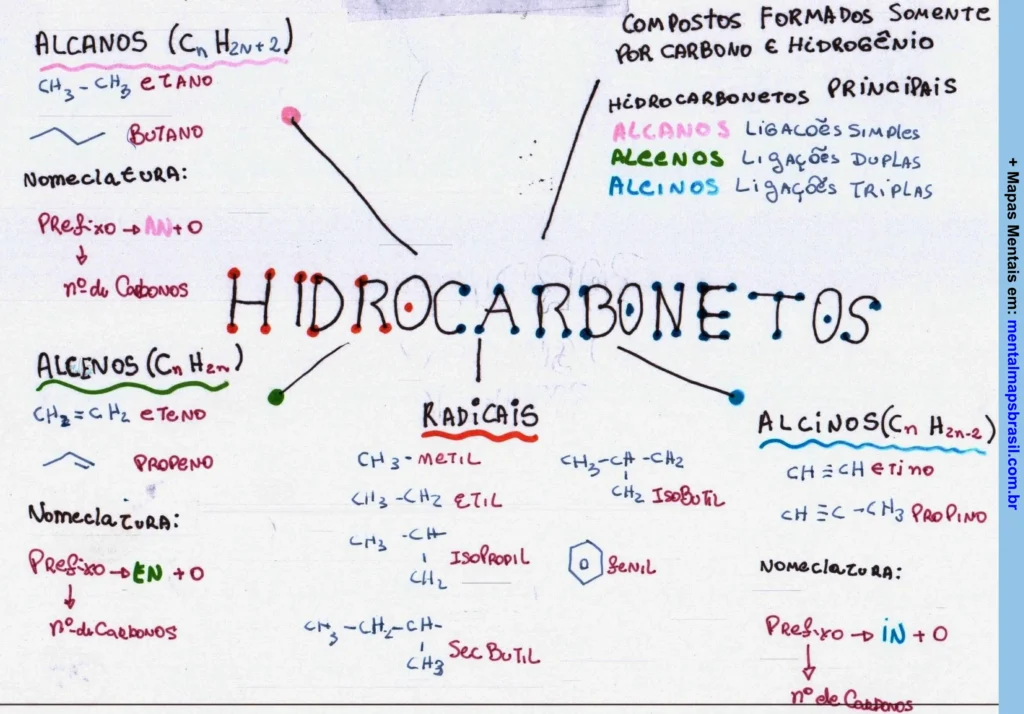 ALCANOS (Cn H2N+2)
CH3 - CH3 ETANO
BUTANO
NOMECLATURA:
PREFIXO → AN + O
nº de Carbonos
COMPOSTOS FORMADOS SOMENTE
POR CARBONO E HIDROGÊNIO
HIDROCARBONETOS PRINCIPAIS
ALCANOS LIGACOÊS SIMPLES
ALCENOS LIGAÇÕES DUPLAS
ALCINOS LIGAÇÕES TRIPLAS
HIDROCARBONETOS
ALCENOS (Cn H2n)
CH2 = CH2 ETENO
PROPENO
NOMECLATURA:
PREFIXO → EN + O
nº de Carbonos
RADICAIS
CH3 - METIL
CH3 - CH2 ETIL
CH3 - CH
CH2 ISOPROPIL
CH3 - CH2 - CH -
CH3 SEC BUTIL
CH3 - CH - CH2
CH2 ISOBUTIL
FENIL
ALCINOS (Cn H2n-2)
CH ≡ CH ETINO
CH ≡ C - CH3 PROPINO
NOMECLATURA:
PREFIXO → IN + O
nº de Carbonos
+ Mapas Mentais em: mentalmapsbrasil.com.br